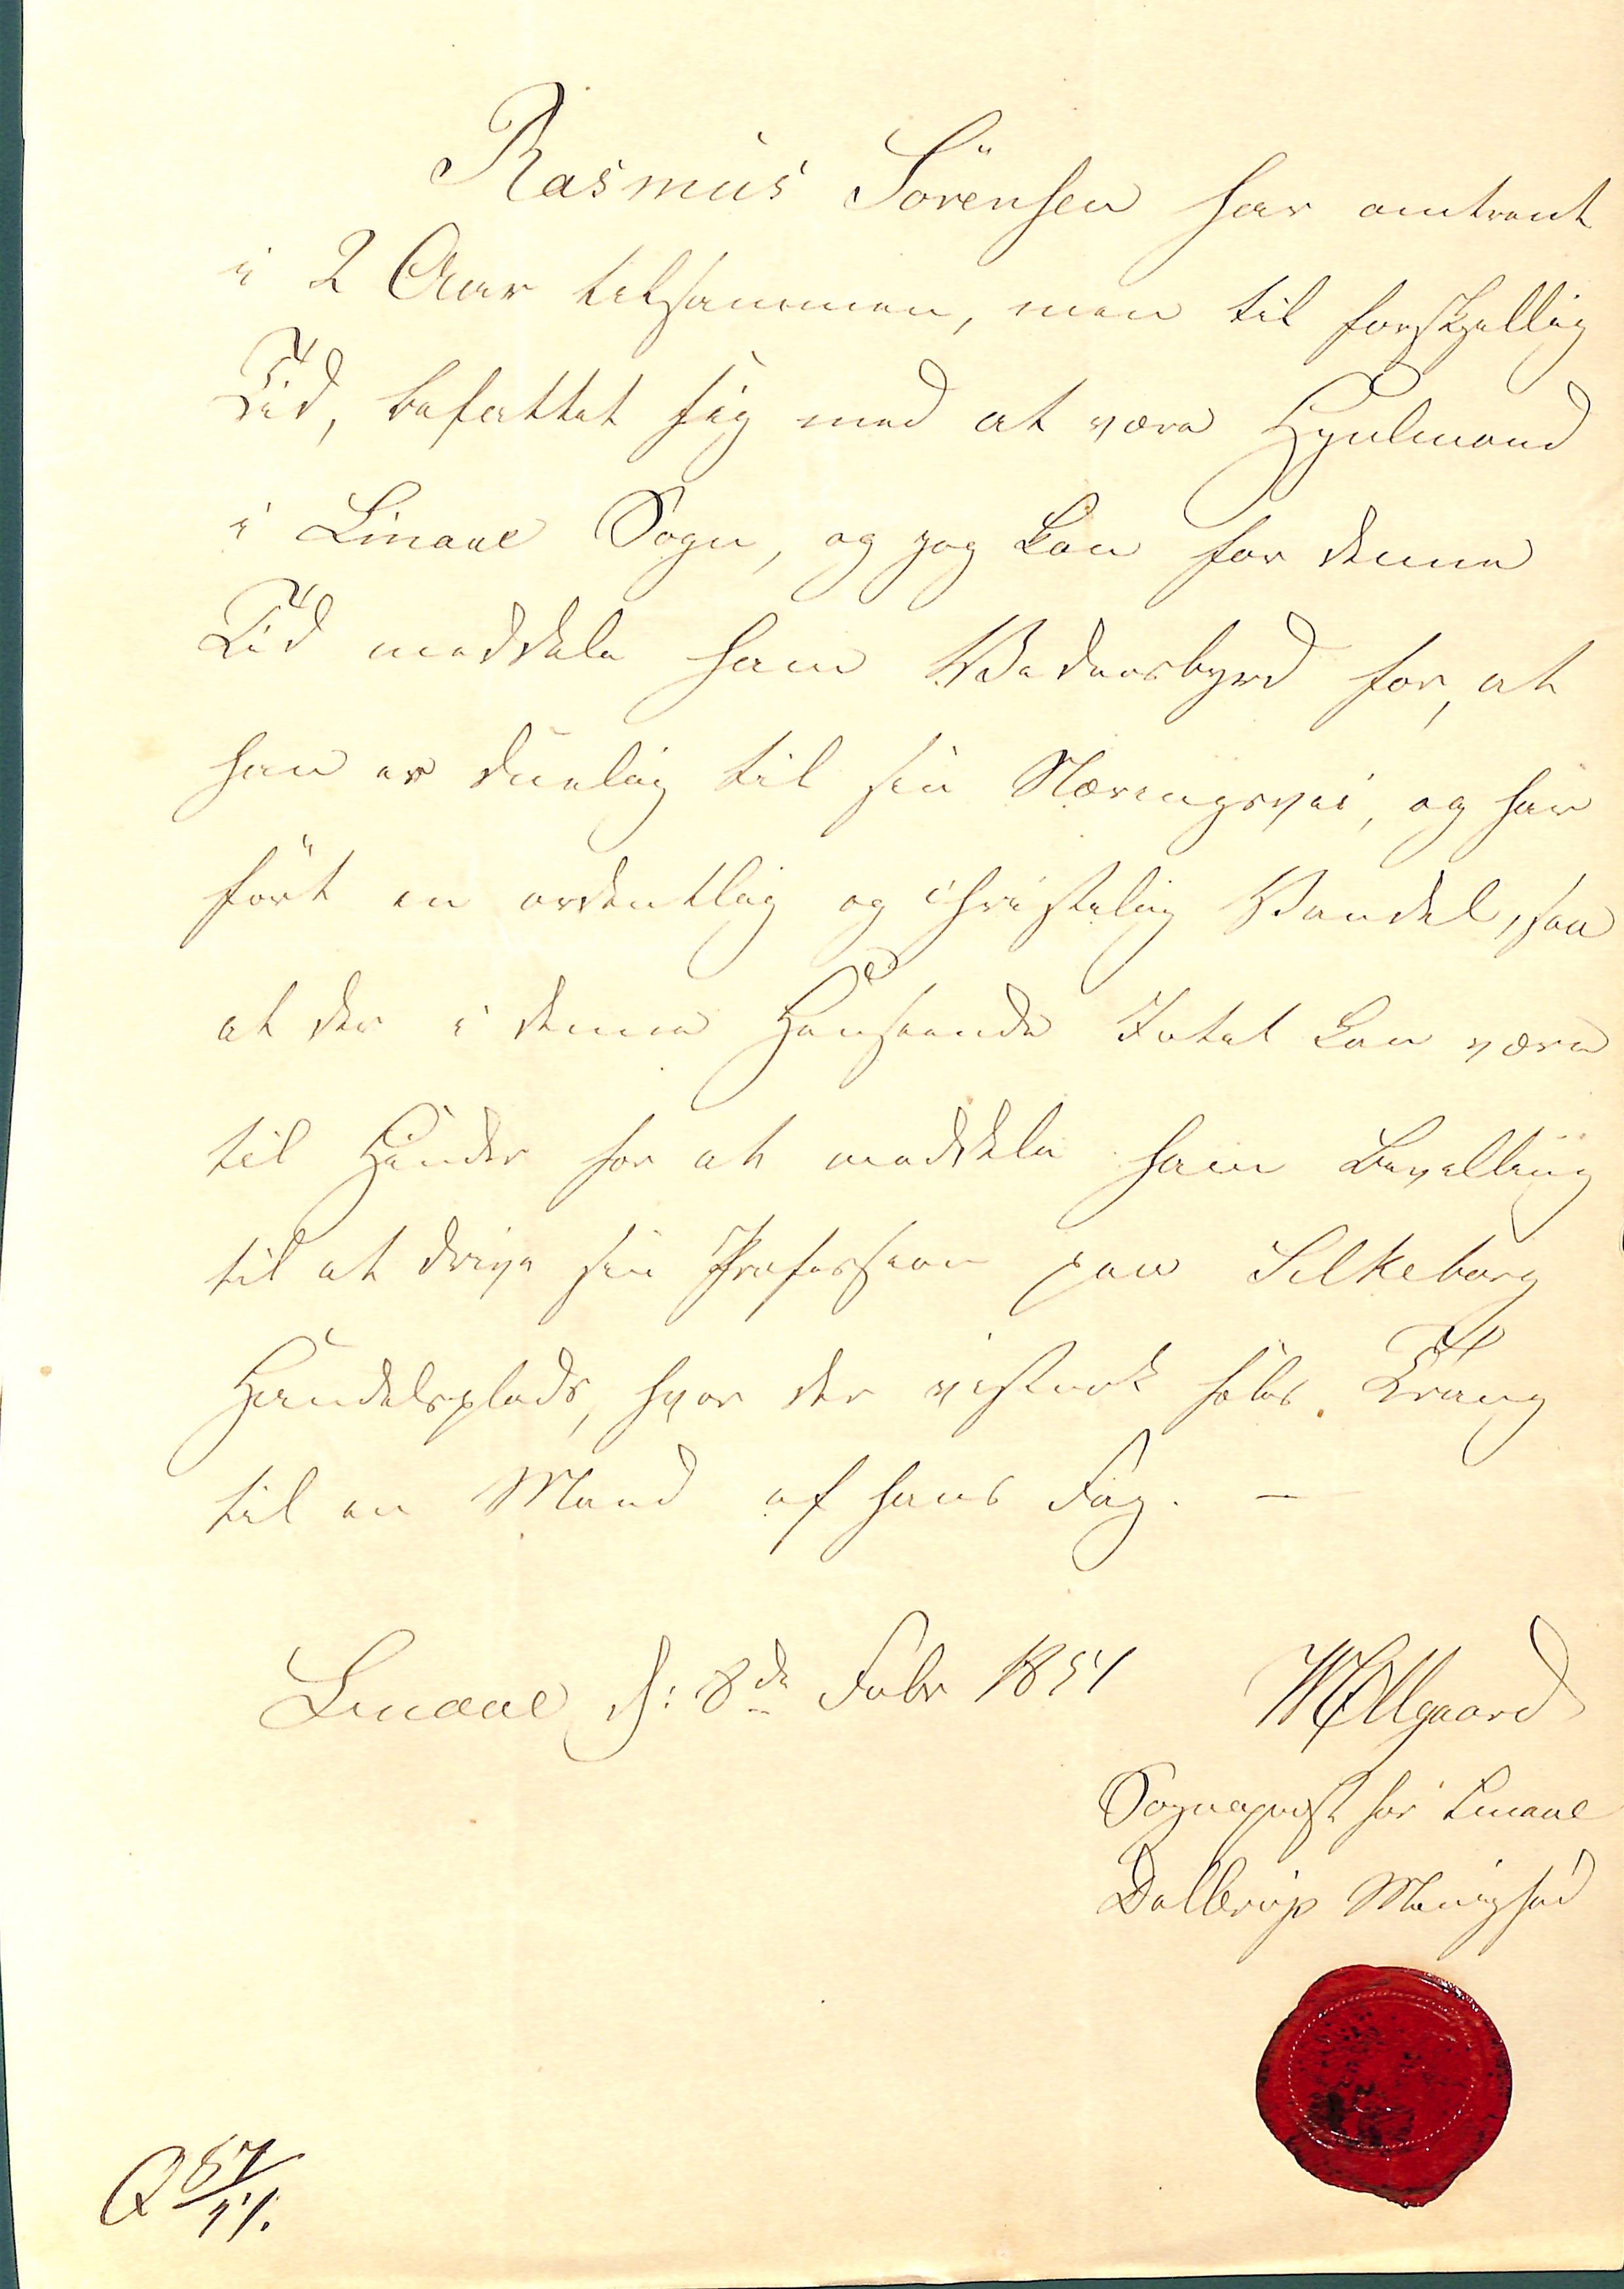 Rasmus Sörensen har omtrent
i 2 Aar tilsammen, men til forskjellig
Tid, befattet sig med at være Hjulmand
i Linaae Sogn, og jeg kan for denne
Tid meddele ham Vidnesbyrd for, at
han er duelig til sin Næringsvei, og har
fört en ordentlig og christelig Vandel, saa
at der i denne Henseende Intet kan være
til Hinder for at meddele ham Bevilling
til at drive sin Profession paa Silkeborg
Handelsplads, hvor der vistnok föles Trang
til en Mand af hans Fag. —
Linaae d: 8de Febr 1851
Möllgaard
Sognepræst for Linaae
Dallerup Menighed
Q 57/51.